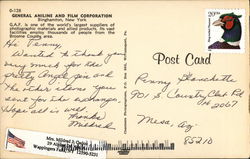 G-128
GENERAL ANILINE AND FILM CORPORATION
Binghamton, New York
G.A.F. is one of the world's largest suppliers of
photographic materials and allied products. Its vast
facilities employ thousands of people from the
Broome County area.
Hi Penny
Wanted to thank you
very much for the
pretty Angel pin and
The other items you
sent for the exchange.
Hope all is well
Thanks
Mildred
Mrs. Mildred J.
29
Wappingers Falls, 12590-5251
20
USA
Post Card
Penny
901 S. Country Club Rd
# 2067
Mesa, Az
85210